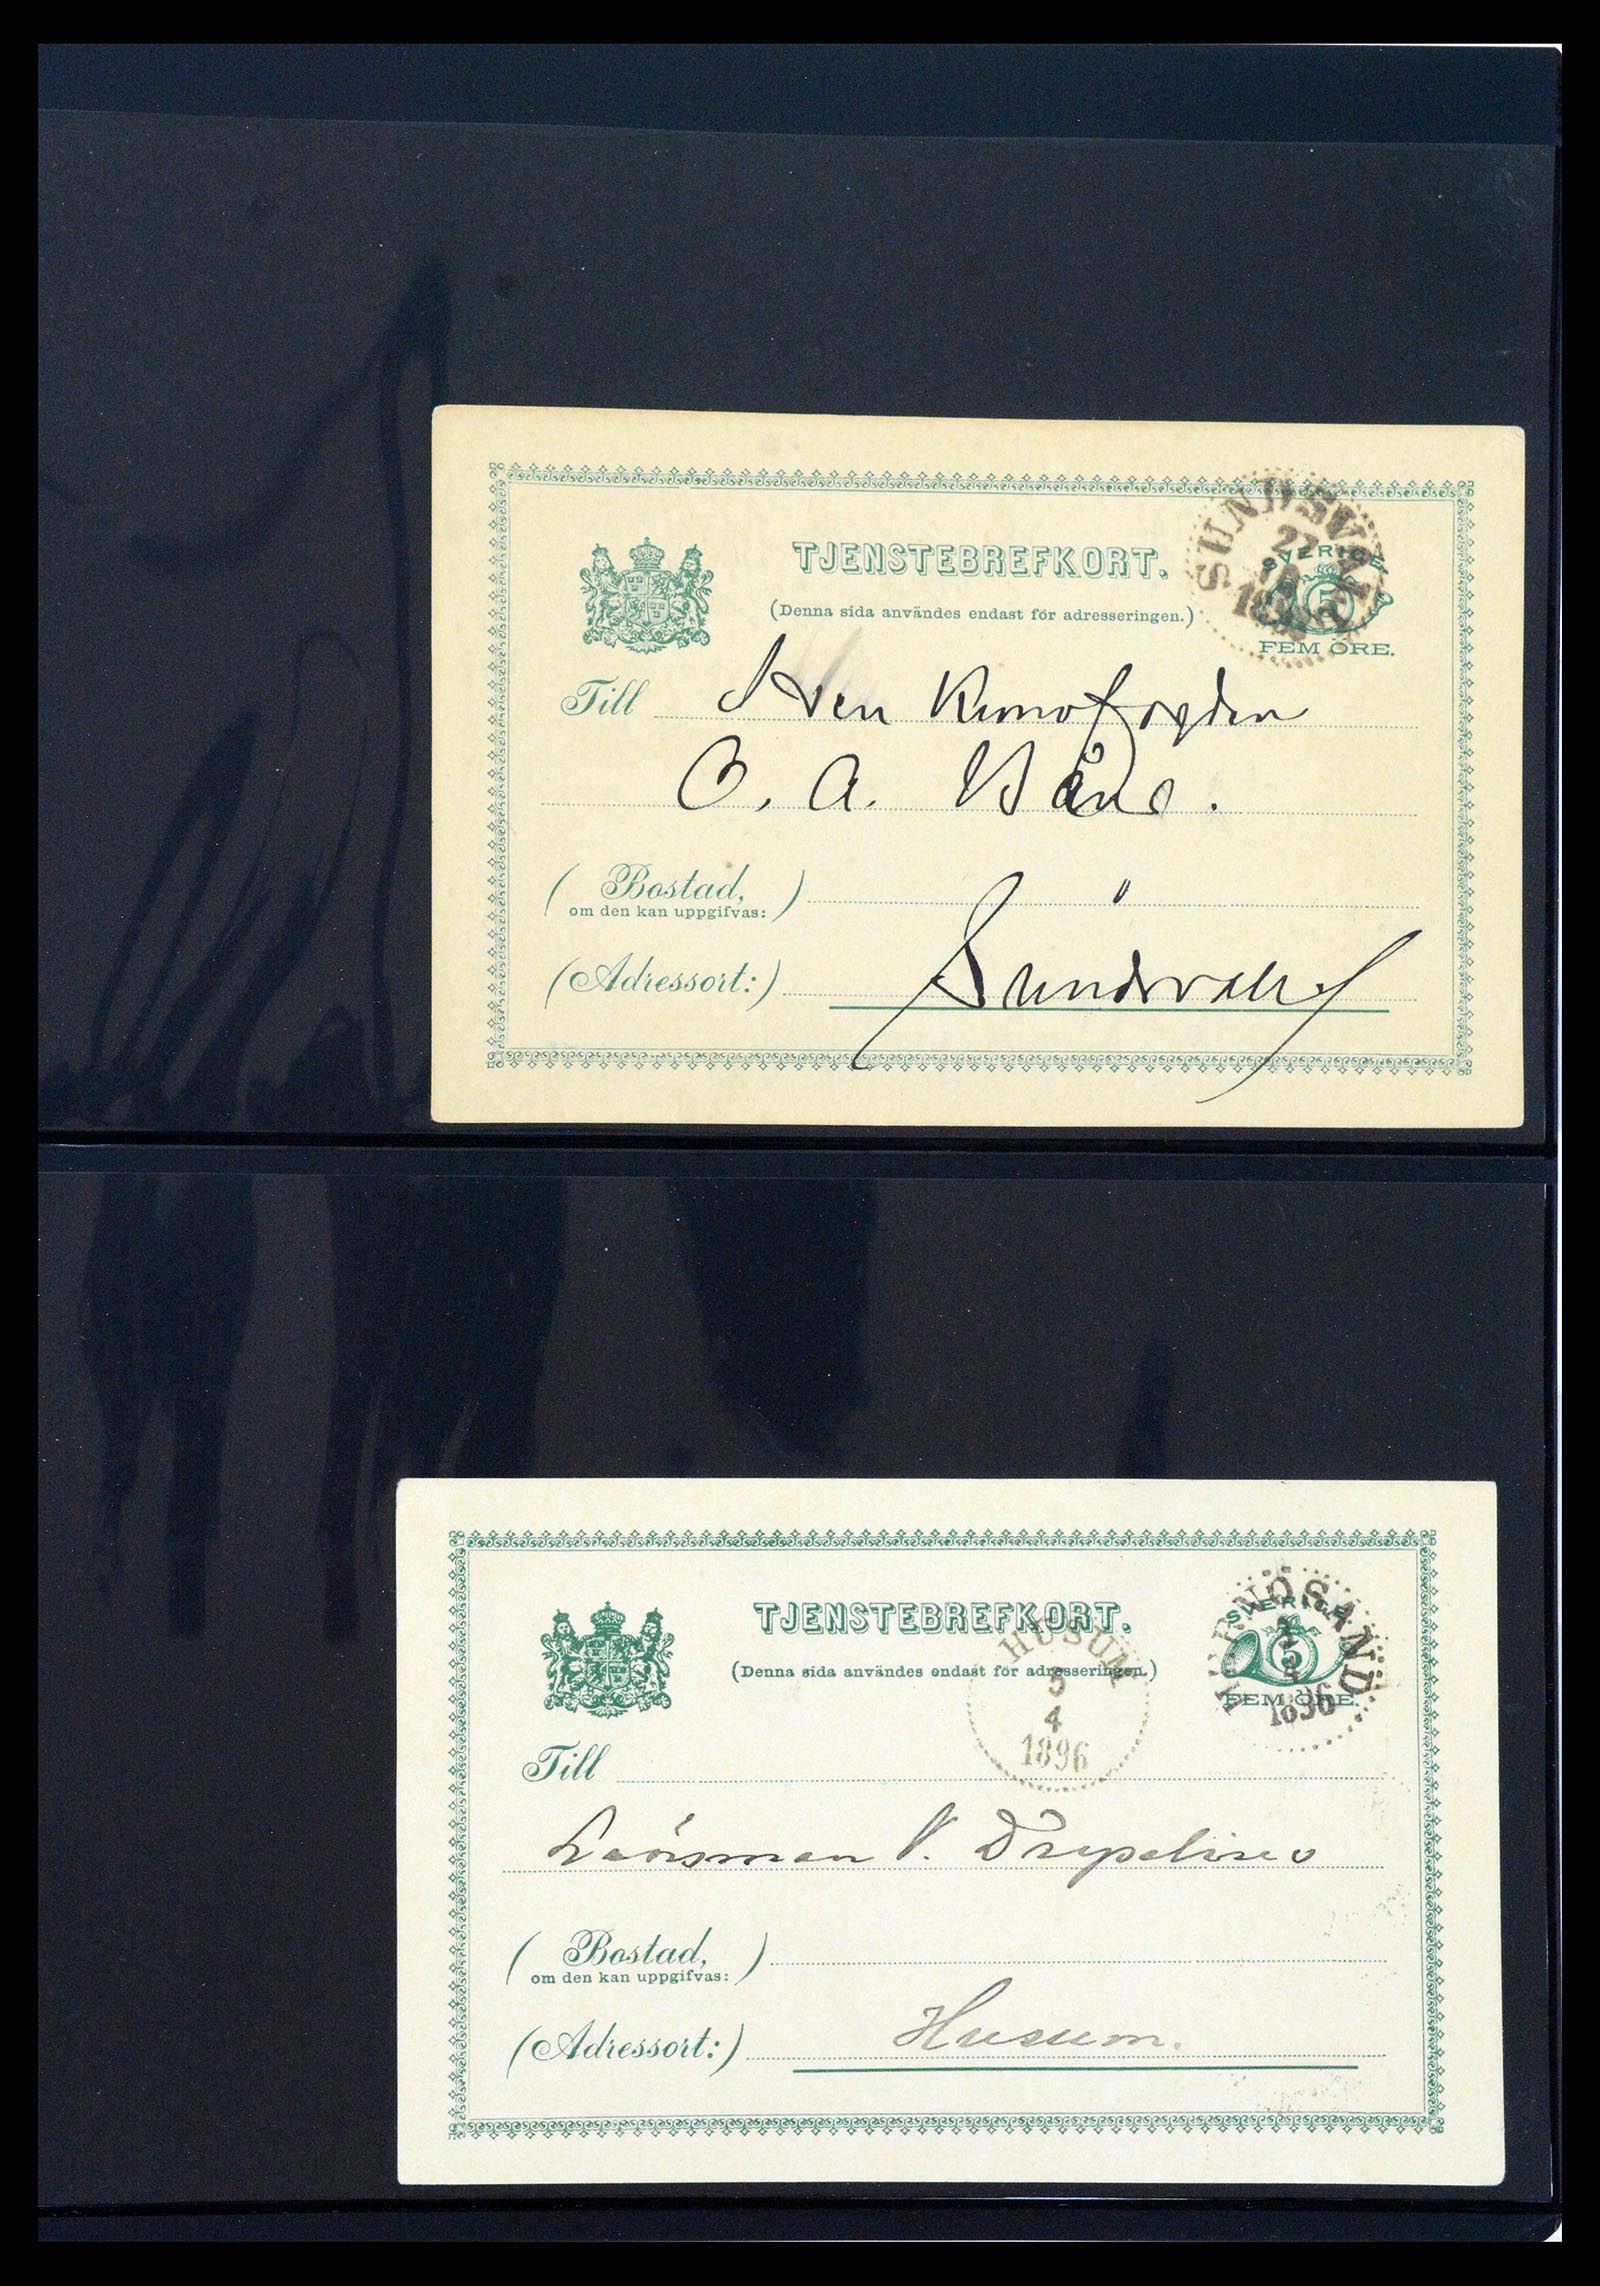 TJENSTEBREFKORT.
(Denna sida användes endast för adresseringen.)
SUNDSVALL
27
SVERIGE
5
FEM ÖRE.
Till
O. A.
(Bostad,
om den kan uppgifvas:)
(Adressort:) Sundsvall
TJENSTEBREFKORT.
(Denna sida användes endast för adresseringen.)
HERNÖSAND
4
1896
SVERIGE
5
FEM ÖRE.
HUSUM
5
4
1896
Till
Länsman
(Bostad,
om den kan uppgifvas:)
(Adressort:) Husum.